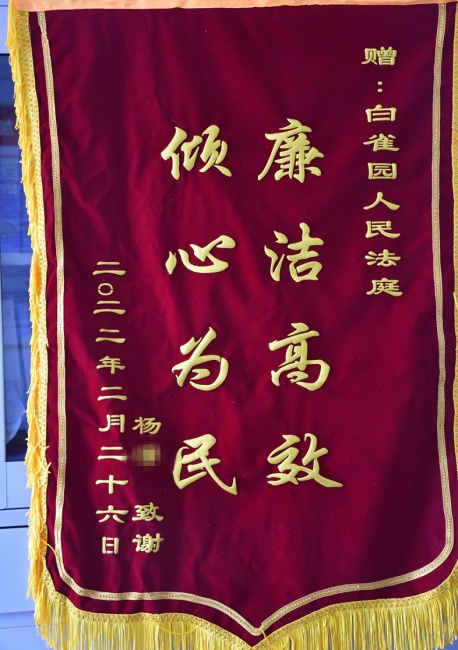 赠：白雀园人民法庭
廉洁高效
倾心为民
杨 致谢
二〇二二年二月二十六日